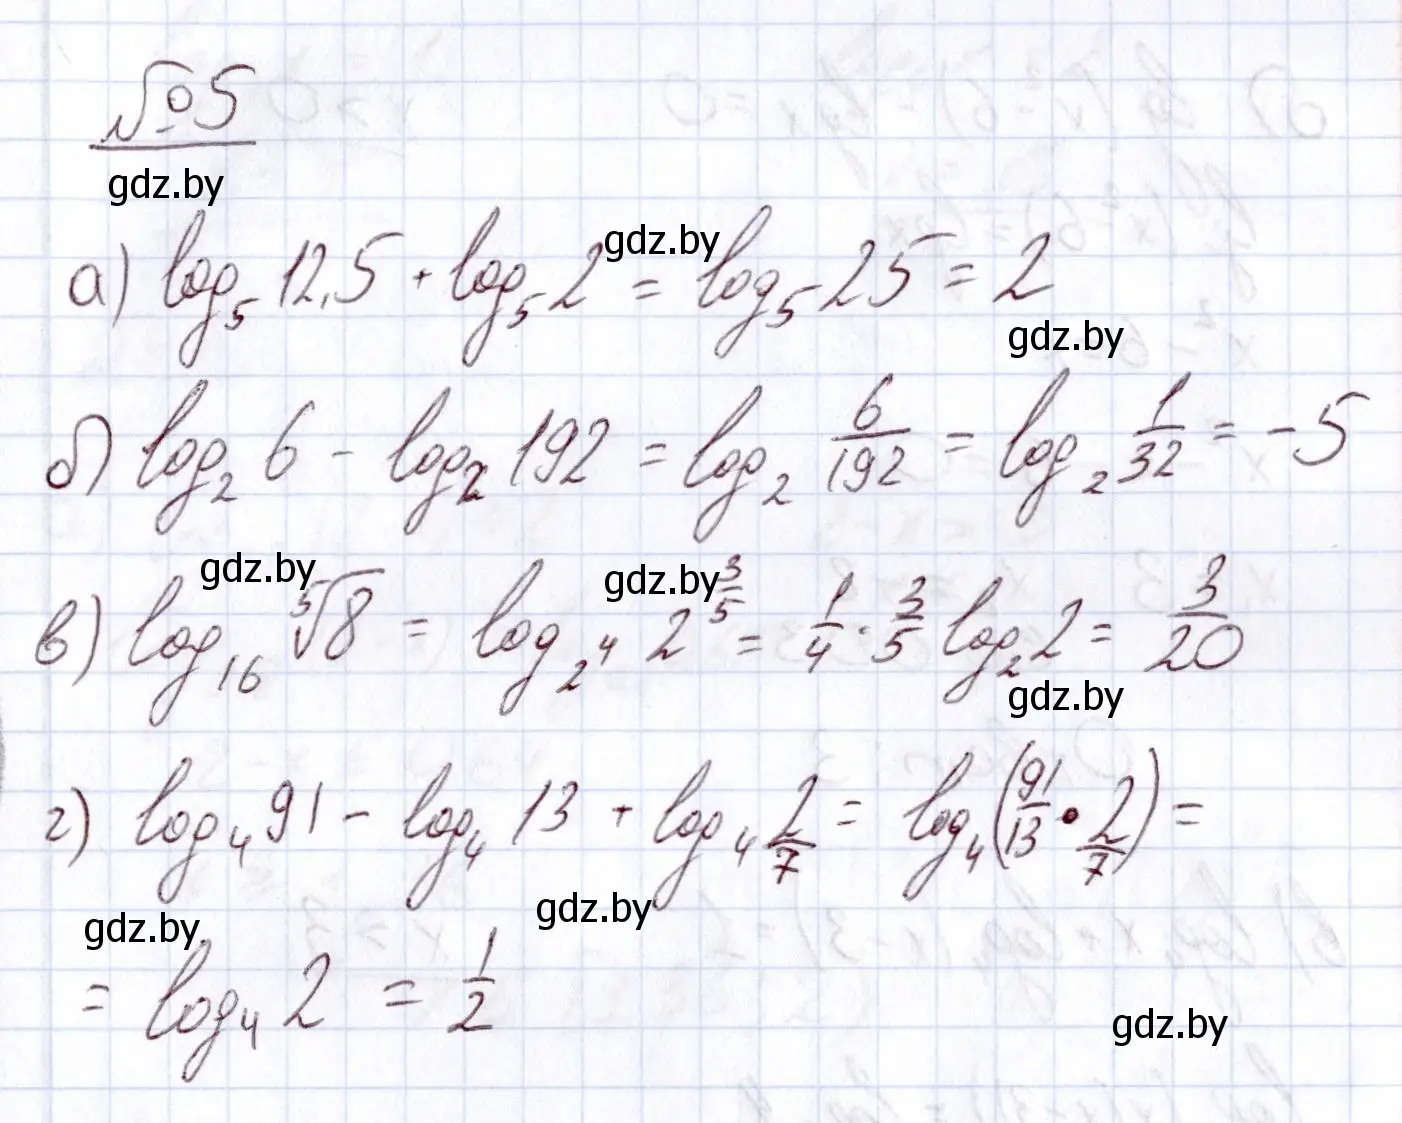 №5
gdz.by
а) log₅ 12,5 + log₅ 2 = log₅ 25 = 2
gdz.by
gdz.by
б) log₂ 6 - log₂ 192 = log₂ 6/192 = log₂ 1/32 = -5
gdz.by
gdz.by
в) log₁₆ ⁵√8 = log_{2^4} 2^{3/5} = 1/4 · 3/5 log₂ 2 = 3/20
gdz.by
г) log₄ 91 - log₄ 13 + log₄ 2/7 = log₄ (91/13 · 2/7) =
gdz.by
gdz.by
= log₄ 2 = 1/2
gdz.by